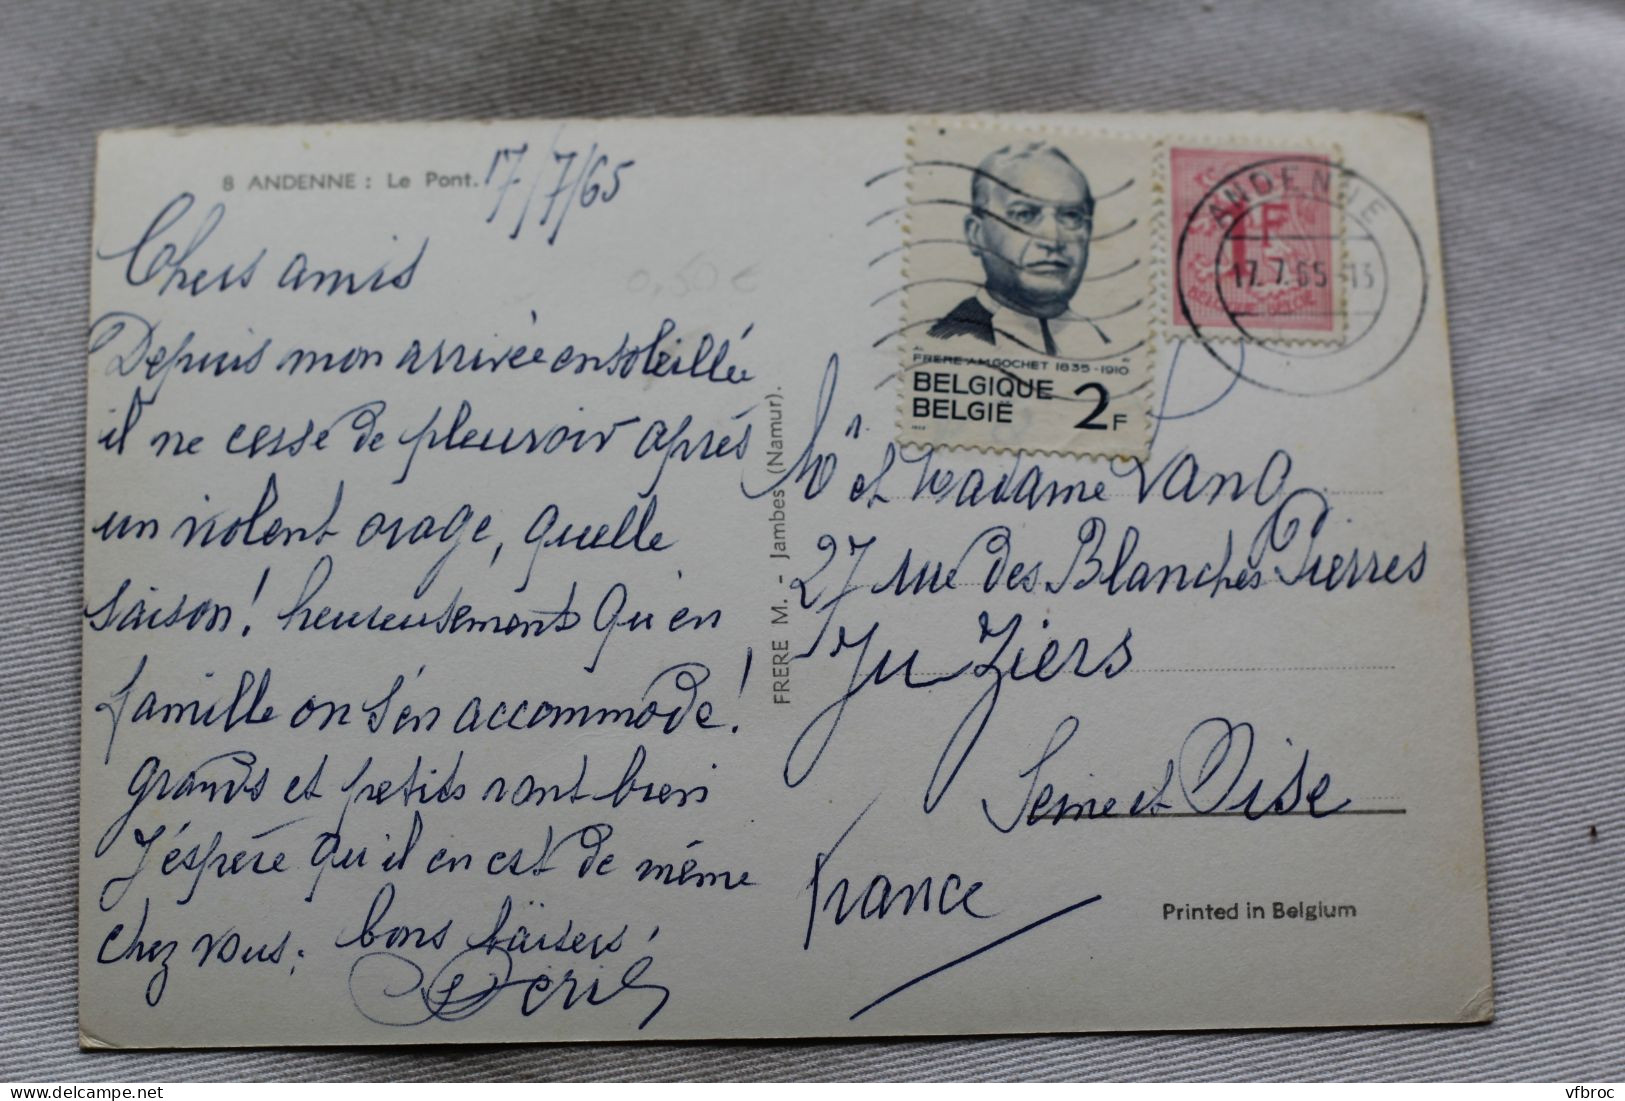 8 ANDENNE : Le Pont.
17/7/65
Chers amis
Depuis mon arrivée ensoleillée
il ne cesse de pleuvoir après
un violent orage, quelle
saison! heureusement qu'en
famille on s'en accommode!
Grands et petits vont bien
J'éspère qu'il en est de même
chez vous. bons baisers.
0,50 €
FRERE M. - Jambes (Namur).
FRERE A.M.GOCHET 1835-1910
BELGIQUE
BELGIË
2F
1F
BELGIQUE-BELGIE
ANDENNE
17.7.65-13
Mr et Madame
27 rue des Blanches Pierres
Juziers
Seine et Oise
France
Printed in Belgium
delcampe.net
vfbroc